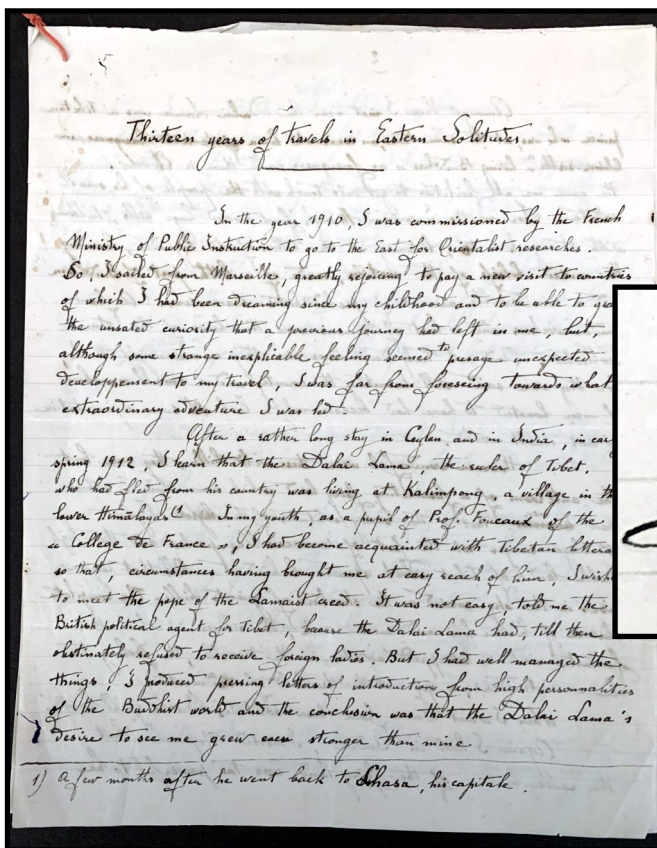 Thirteen years of travels in Eastern Solitudes
In the year 1910, I was commissioned by the French
Ministry of Public Instruction to go to the East for Orientalist researches.
So, I sailed from Marseille, greatly rejoicing to pay a new visit to countries
of which I had been dreaming since my childhood and to be able to
the unsated curiosity that a previous journey had left in me, but,
although some strange inexplicable feeling seemed to presage unexpected
developpement to my travel, I was far from foreseeing towards what
extraordinary adventure I was led.
After a rather long stay in Ceylan and in India, in
spring 1912, I learn that the Dalai Lama the ruler of Tibet,
who had fled from his country was living at Kalimpong, a village in
lower Himalayas (1 In my youth, as a pupil of Prof. Foucaux of the
« College de France », I had become acquainted with Tibetan
so that, circumstances having brought me at easy reach of him, I
to meet the pope of the Lamaist creed. It was not easy told me the
British political agent for Tibet, because the Dalai Lama had, till then
obstinately refused to receive foreign ladies. But I had well managed the
things; I produced pressing letters of introduction from high personnalities
of the Buddhist world and the conclusion was that the Dalai Lama's
desire to see me grew even stronger than mine
1) A few months after he went back to Lhasa, his capitale.